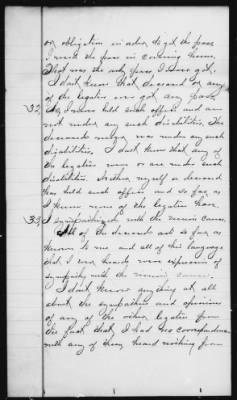 or obligation in order to get the pass
I used the pass in coming home.
That was the only pass I ever got.
I don't know that deceased or any
of the legatees ever got any pass.
32 I never held such office and am
not under any such disabilities. The
deceased never was under any such
disabilities. I don't know that any of
the legatees were or are under such
disabilities. Neither myself or deceased
has held such office and so far as
I know none of the legatees have.
33 I sympathized with the Union cause.
All of the deceased acts so far as
known to me and all of his language
that I ever heard were expressions of
sympathy with the Union cause.
I don't know anything at all
about the sympathies and opinions
of any of the other legatees from
the fact that I had no correspondence
with any of them heard nothing from